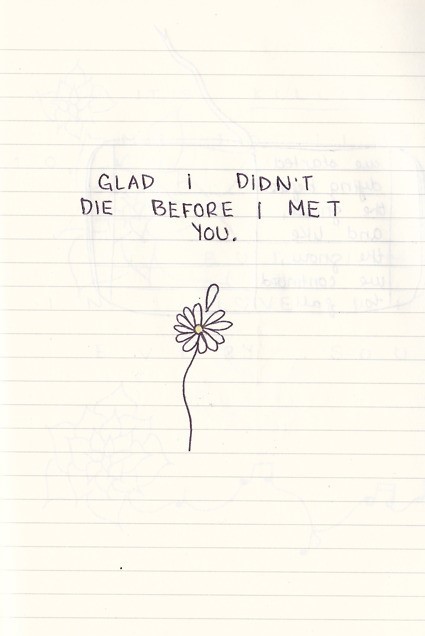 GLAD i DIDN'T
DIE BEFORE I MET
YOU.